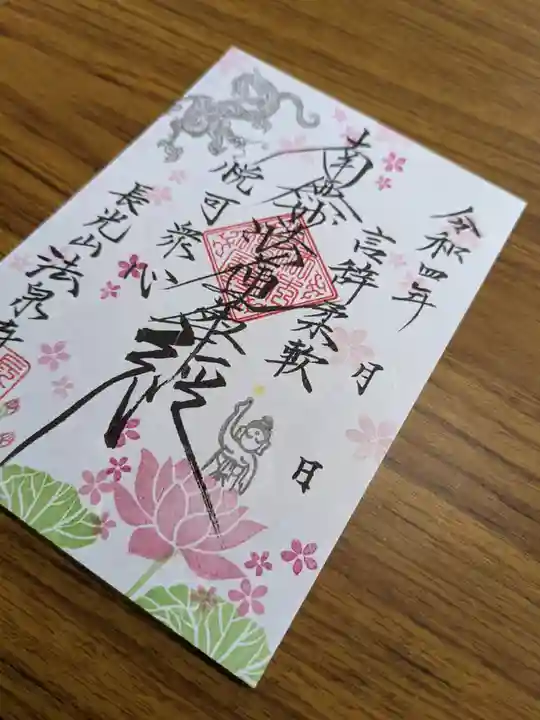 令和四年
月
日
言辞柔軟
南無妙法蓮華経
悦可衆心
長光山法泉寺